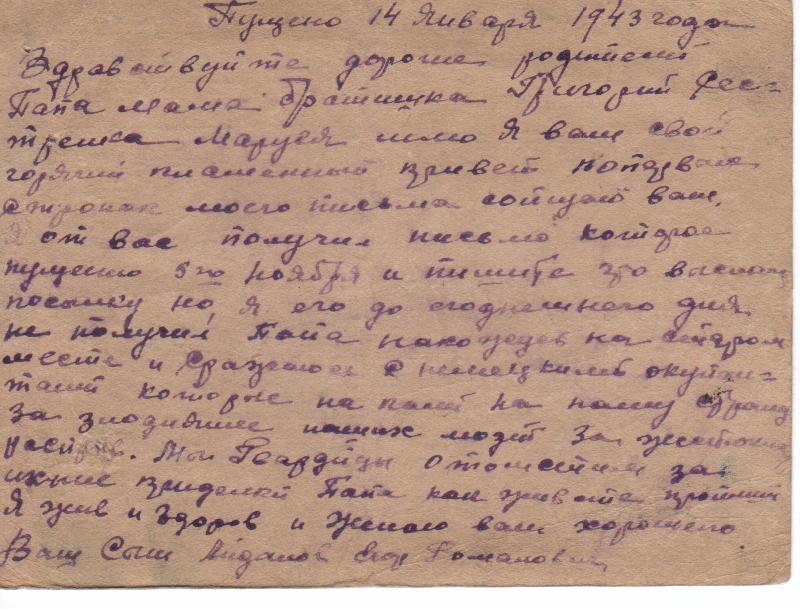 Пущено 14 января 1943 года
Здравствуйте дорогие родители
Папа мама братишка Григорий Сес=
трешка Маруся шлю Я вам свой
горячий пламенный привет
строках моего письма сопщаю вам,
Я от вас получил письмо которое
пущенно 5го ноября и пишите
посылку но я его до сегоднешнего дня
не получил Папа нахожусь на старом
месте и Сражаюсь с немецкими окупан=
тами которые на нашу страну
За злодияние наших людей За
Мы Гвардейцы отомстим за
Папа как живете
Я жив и Здоров и Желаю вам хорошего
Ваш Сын Айдаков Егор Романович